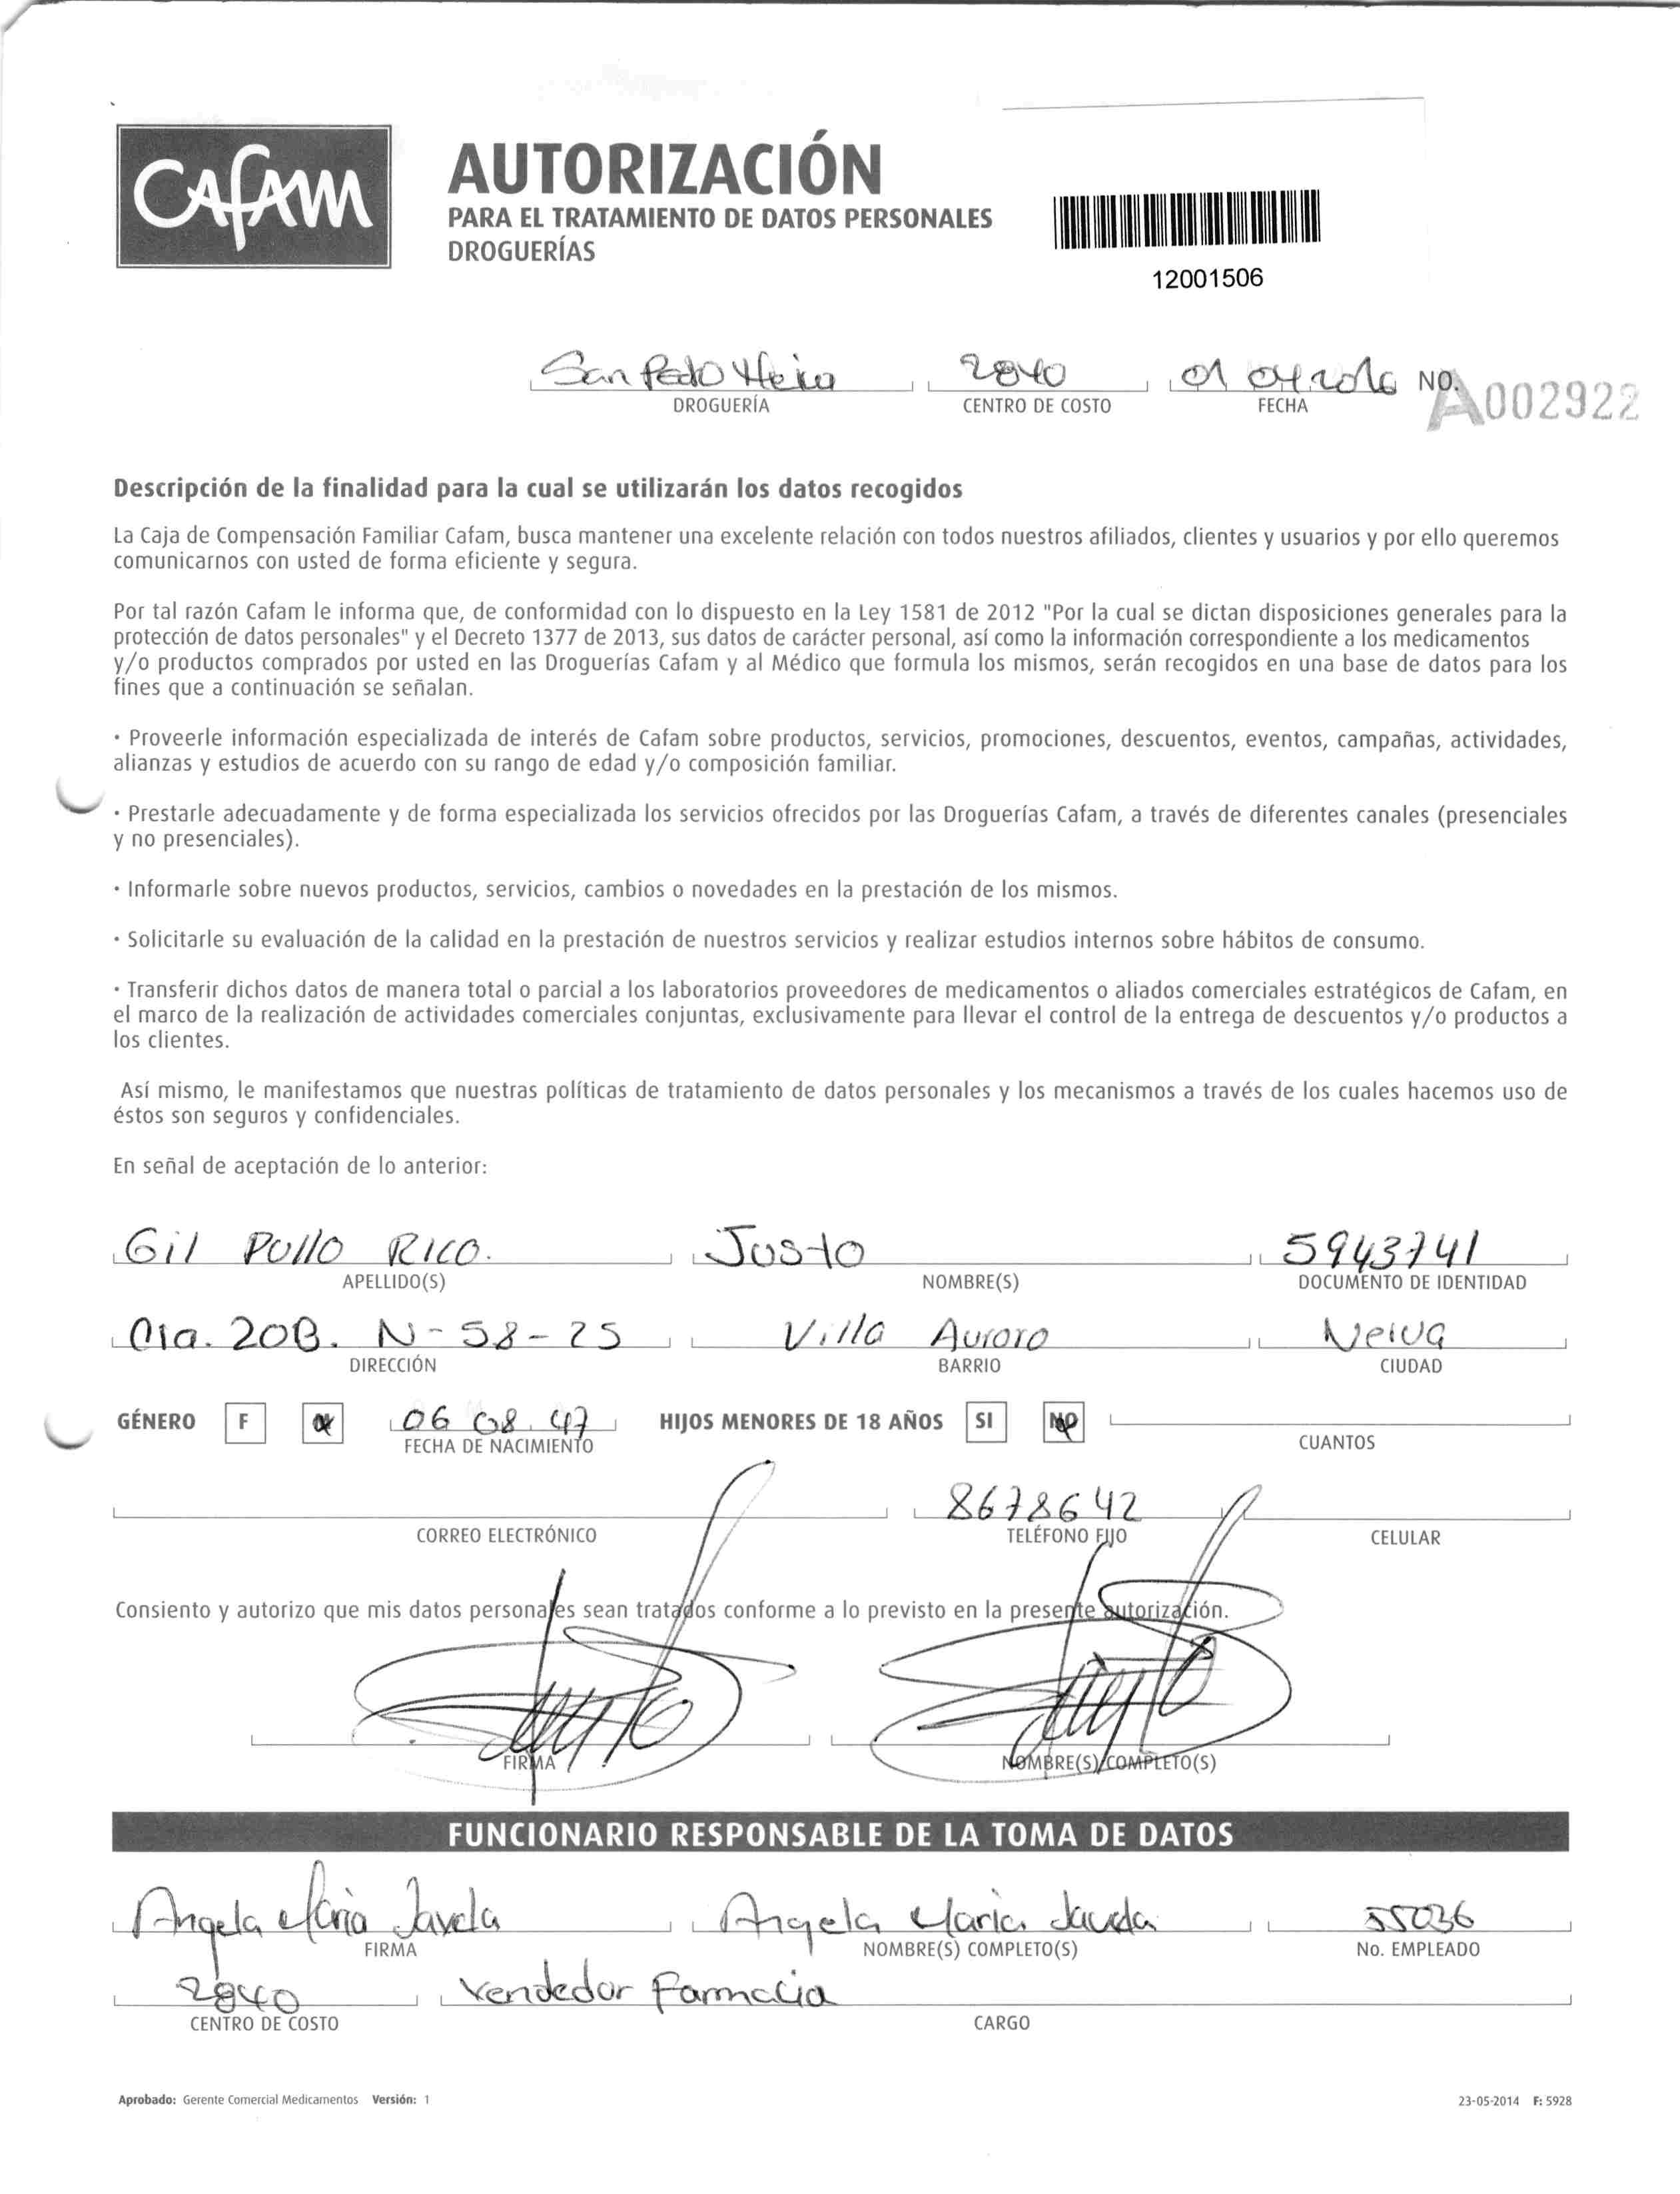 CAfAM
AUTORIZACIÓN
PARA EL TRATAMIENTO DE DATOS PERSONALES
DROGUERÍAS
12001506
San Pedro Neiva 2840 01 04 2016 NO. A002922
DROGUERÍA CENTRO DE COSTO FECHA
Descripción de la finalidad para la cual se utilizarán los datos recogidos
La Caja de Compensación Familiar Cafam, busca mantener una excelente relación con todos nuestros afiliados, clientes y usuarios y por ello queremos
comunicarnos con usted de forma eficiente y segura.
Por tal razón Cafam le informa que, de conformidad con lo dispuesto en la Ley 1581 de 2012 "Por la cual se dictan disposiciones generales para la
protección de datos personales" y el Decreto 1377 de 2013, sus datos de carácter personal, así como la información correspondiente a los medicamentos
y/o productos comprados por usted en las Droguerías Cafam y al Médico que formula los mismos, serán recogidos en una base de datos para los
fines que a continuación se señalan.
· Proveerle información especializada de interés de Cafam sobre productos, servicios, promociones, descuentos, eventos, campañas, actividades,
alianzas y estudios de acuerdo con su rango de edad y/o composición familiar.
· Prestarle adecuadamente y de forma especializada los servicios ofrecidos por las Droguerías Cafam, a través de diferentes canales (presenciales
y no presenciales).
· Informarle sobre nuevos productos, servicios, cambios o novedades en la prestación de los mismos.
· Solicitarle su evaluación de la calidad en la prestación de nuestros servicios y realizar estudios internos sobre hábitos de consumo.
· Transferir dichos datos de manera total o parcial a los laboratorios proveedores de medicamentos o aliados comerciales estratégicos de Cafam, en
el marco de la realización de actividades comerciales conjuntas, exclusivamente para llevar el control de la entrega de descuentos y/o productos a
los clientes.
Así mismo, le manifestamos que nuestras políticas de tratamiento de datos personales y los mecanismos a través de los cuales hacemos uso de
éstos son seguros y confidenciales.
En señal de aceptación de lo anterior:
Gil Pollo Rico. Justo 5943741
APELLIDO(S) NOMBRE(S) DOCUMENTO DE IDENTIDAD
20B. N-58-25 Villa Aurora Neiva
DIRECCIÓN BARRIO CIUDAD
GÉNERO F 06 08 47 HIJOS MENORES DE 18 AÑOS SI NO
FECHA DE NACIMIENTO CUANTOS
8678642
CORREO ELECTRÓNICO TELÉFONO FIJO CELULAR
Consiento y autorizo que mis datos personales sean tratados conforme a lo previsto en la presente autorización.
FIRMA NOMBRE(S) COMPLETO(S)
FUNCIONARIO RESPONSABLE DE LA TOMA DE DATOS
Angela Maria Javela Angela Maria Javela 55036
FIRMA NOMBRE(S) COMPLETO(S) No. EMPLEADO
2840 Vendedor Farmacia
CENTRO DE COSTO CARGO
Aprobado: Gerente Comercial Medicamentos Versión: 1 23-05-2014 F: 5928